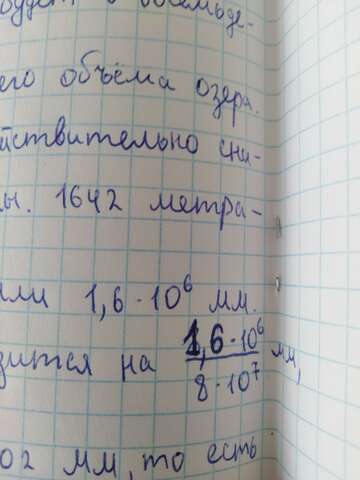 будет в восемьде-
его объёма озера.
йствительно сни-
ы. 1642 метра-
или 1,6·10⁶ мм.
зится на 1,6·10⁶/8·10⁷ мм,
02 мм, то есть